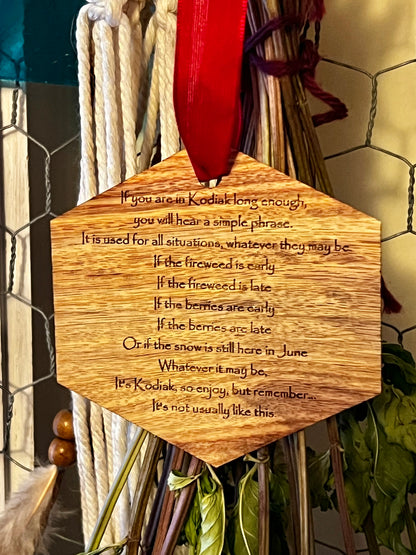 If you are in Kodiak long enough,
you will hear a simple phrase.
It is used for all situations, whatever they may be.
If the fireweed is early
If the fireweed is late
If the berries are early
If the berries are late
Or if the snow is still here in June
Whatever it may be,
It's Kodiak, so enjoy, but remember...
It's not usually like this.